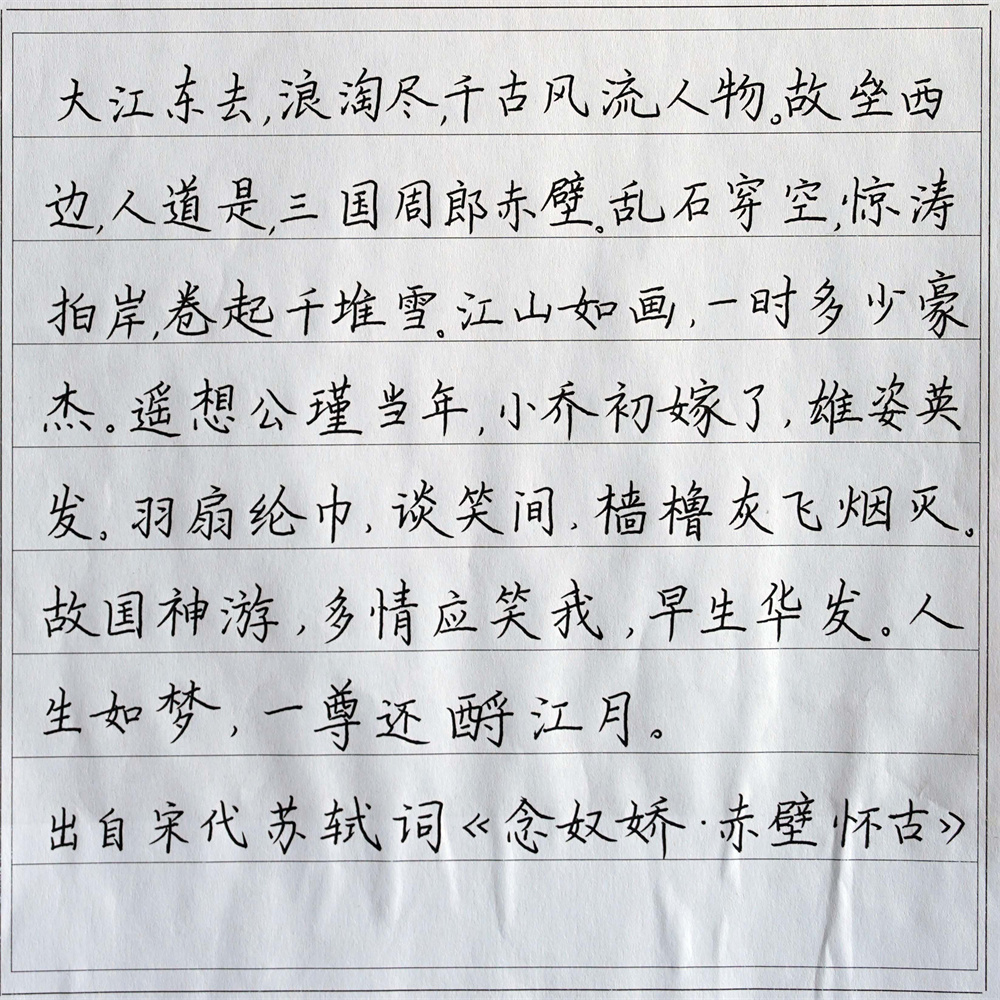 大江东去,浪淘尽,千古风流人物。故垒西
边,人道是,三国周郎赤壁。乱石穿空,惊涛
拍岸,卷起千堆雪。江山如画,一时多少豪
杰。遥想公瑾当年,小乔初嫁了,雄姿英
发。羽扇纶巾,谈笑间,樯橹灰飞烟灭。
故国神游,多情应笑我,早生华发。人
生如梦,一尊还酹江月。
出自宋代苏轼词《念奴娇·赤壁怀古》